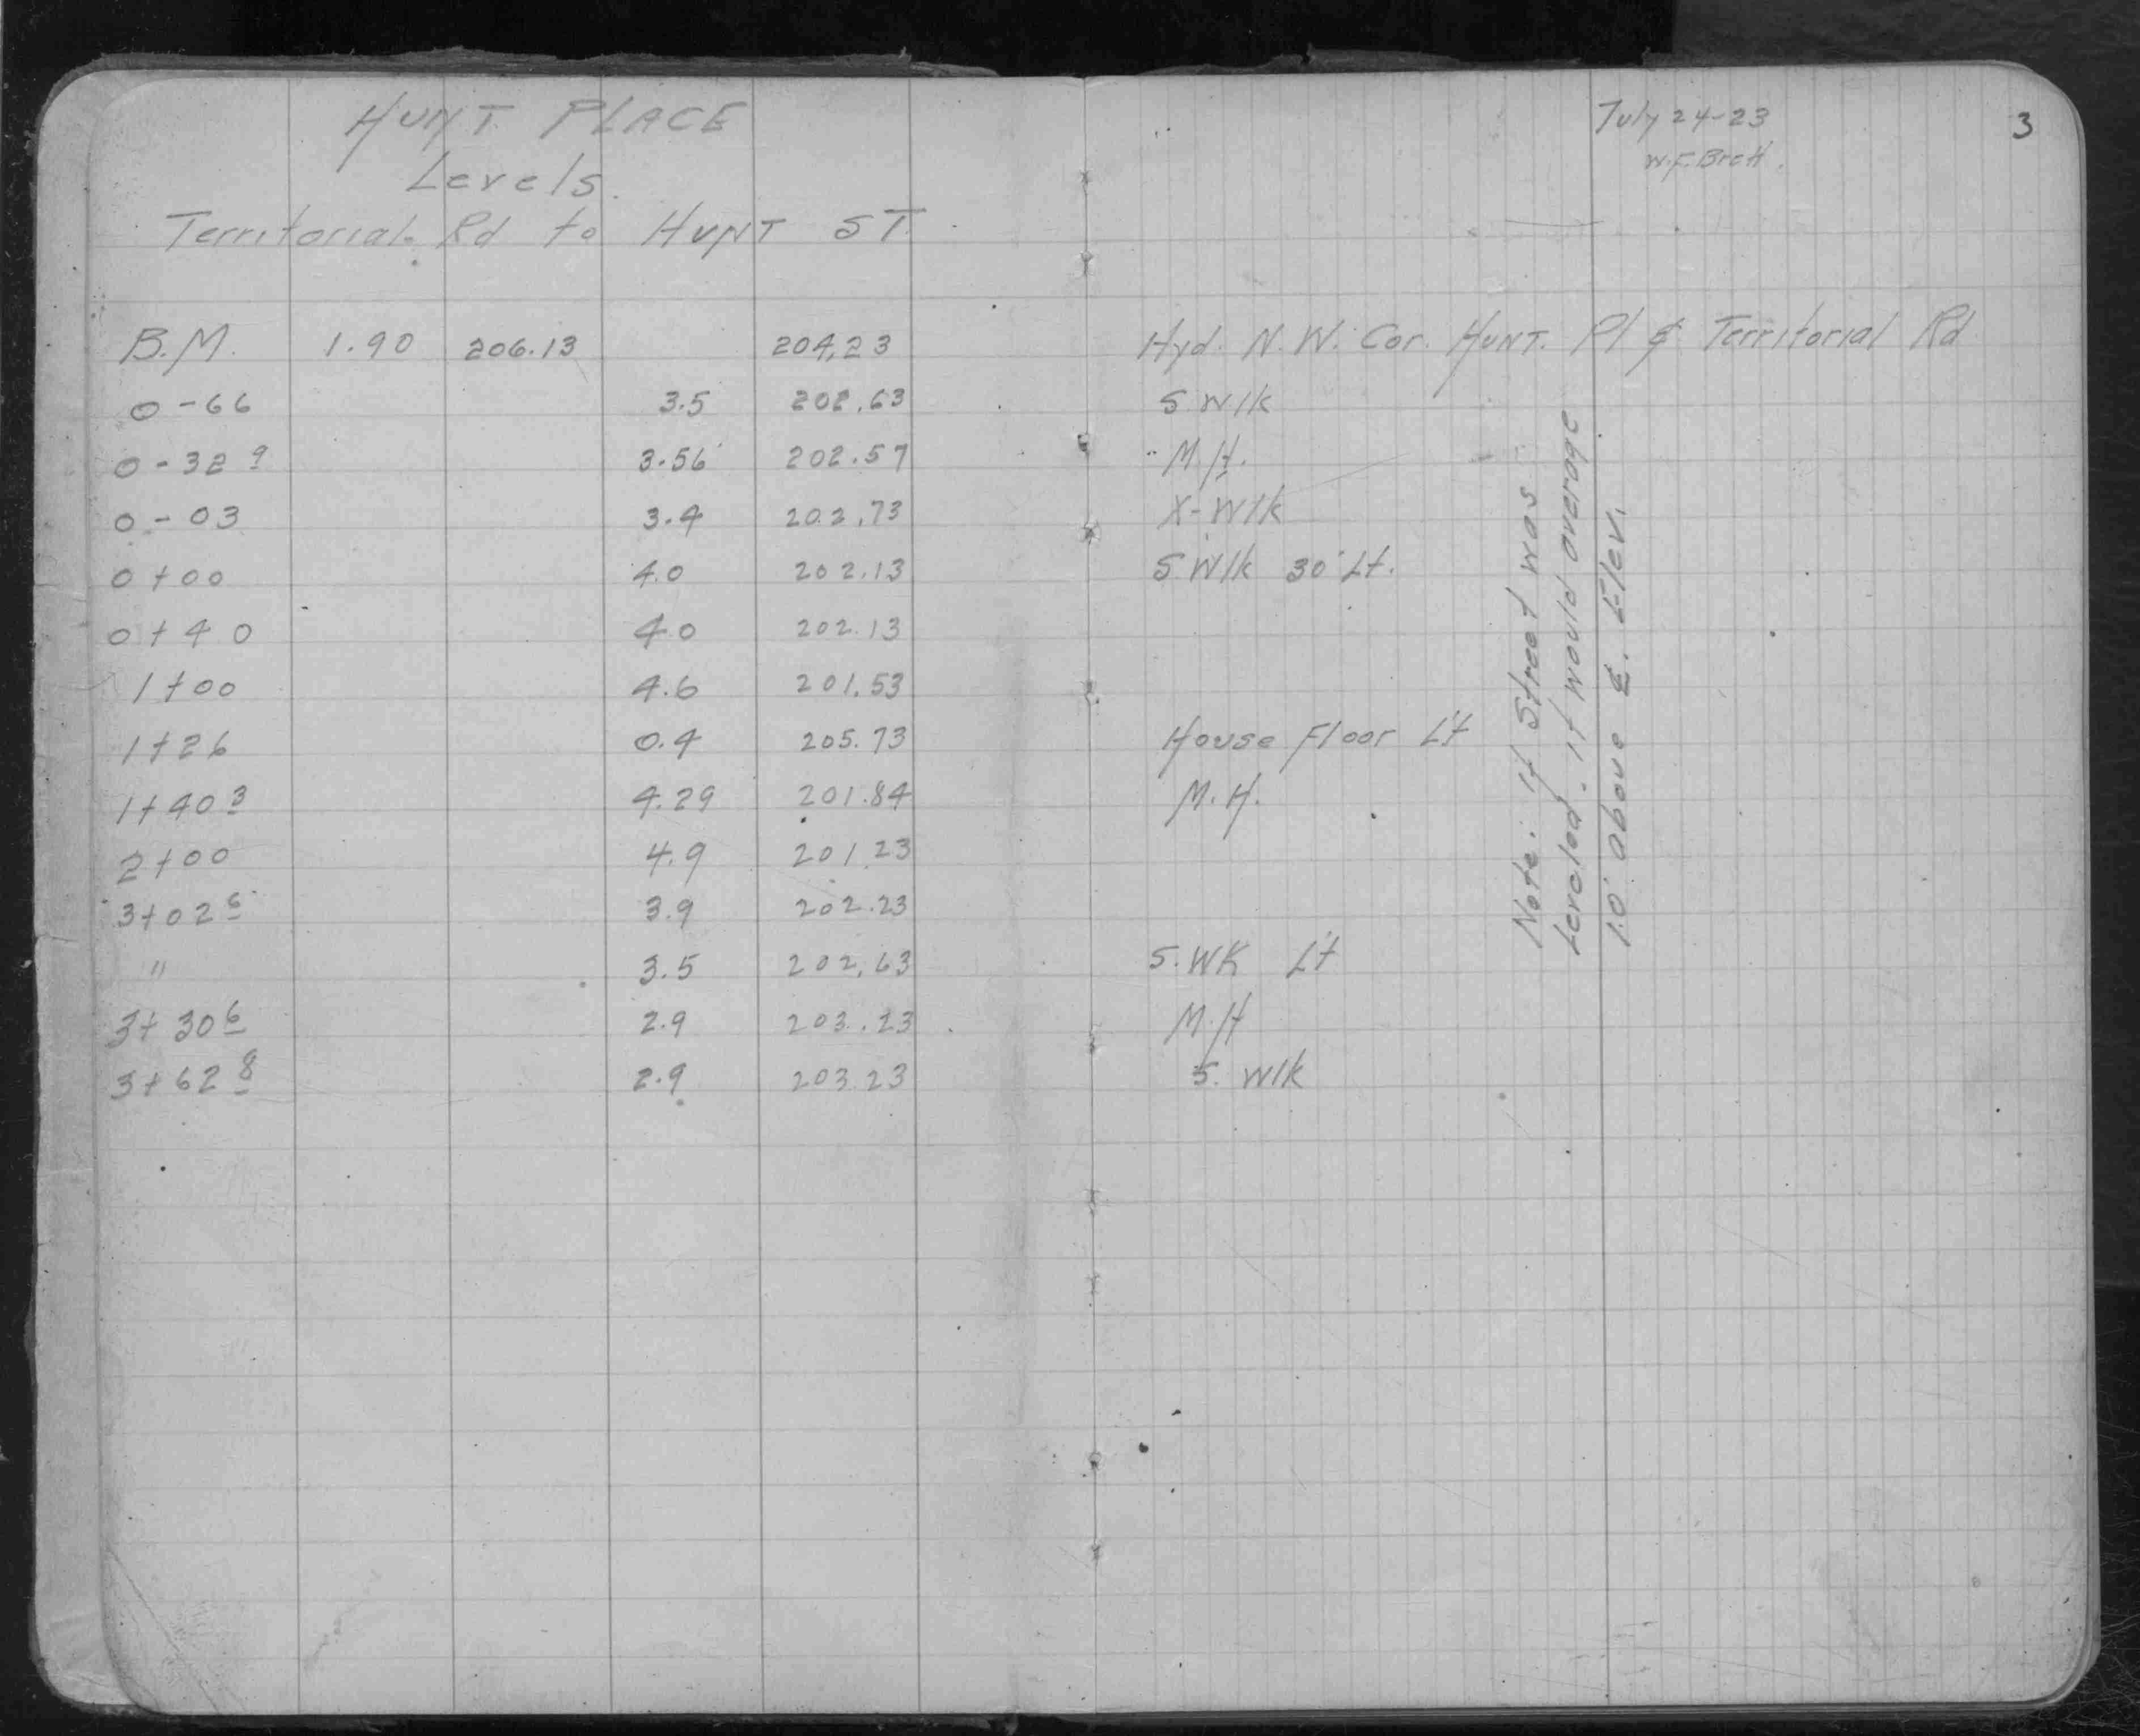 HUNT PLACE
Levels.
Territorial Rd to HUNT ST.
July 24-23
3
W.F. Brett.
B.M. 1.90 206.13 204.23 Hyd. N.W. Cor. HUNT. Pl & Territorial Rd
0-66 3.5 202.63 S. Wlk
0-32 9 3.56 202.57 M.H.
0-03 3.4 202.73 X-Wlk
0+00 4.0 202.13 S. Wlk 30' Lt.
0+40 4.0 202.13
1+00 4.6 201.53
1+26 0.4 205.73 House Floor Lt
1+40 3 4.29 201.84 M.H.
2+00 4.9 201.23
3+02 6 3.9 202.23
" 3.5 202.63 S. WK Lt
3+30 6 2.9 203.23 M.H
3+62 8 2.9 203.23 S. Wlk
Note: if Street was
Leveled. it would average
1.0' above ℄. Elev.